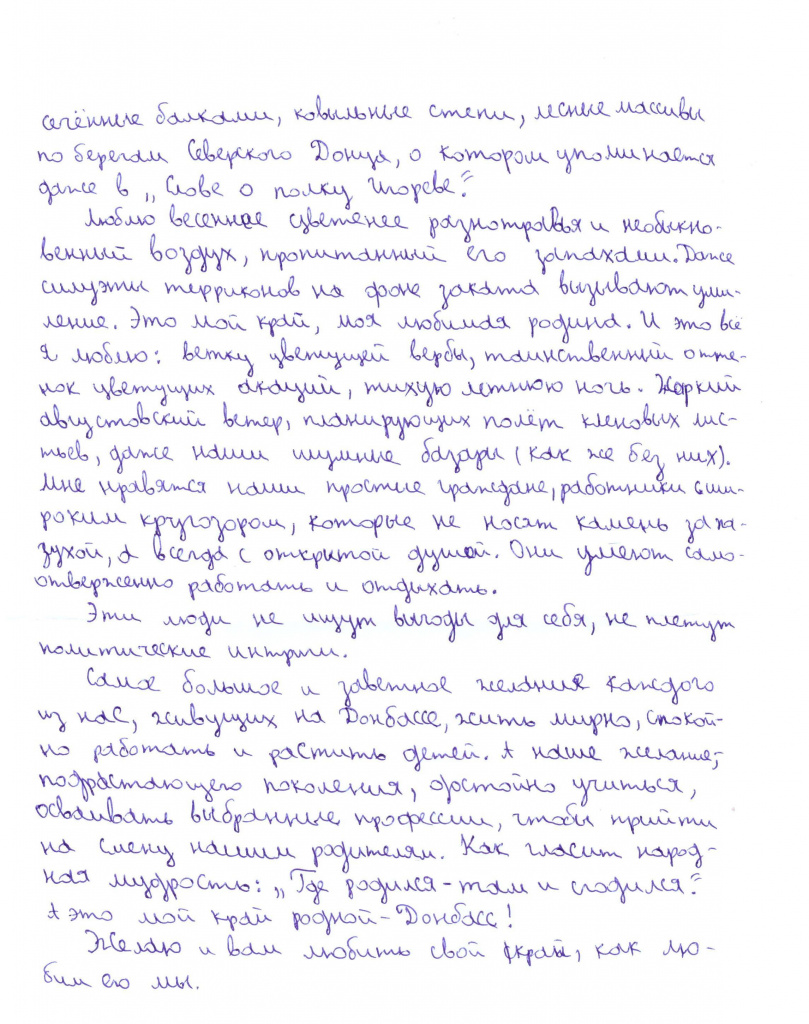 сечённые балками, ковыльные степи, лесные массивы
по берегам Северского Донца, о котором упоминается
даже в „Слове о полку Игореве“.
Люблю весеннее цветенее разнотравья и необыкно-
венный воздух, пропитанный его запахами. Даже
силуэты терриконов на фоне заката вызывают уми-
ление. Это мой край, моя любимая родина. И это всё
я люблю: ветку цветущей вербы, таинственный отте-
нок цветущих акаций, тихую летнюю ночь. Жаркий
августовский ветер, планирующих полёт кленовых лис-
тьев, даже наши шумные базары (как же без них).
Мне нравятся наши простые граждане, работники с ши-
роким кругозором, которые не носят камень за па-
зухой, а всегда с открытой душой. Они умеют само-
отверженно работать и отдыхать.
Эти люди не ищут выгоды для себя, не плетут
политические интриги.
Самое большое и заветное желание каждого
из нас, живущих на Донбассе, жить мирно, спокой-
но работать и растить детей. А наше желание,
подрастающего поколения, достойно учиться,
осваивать выбранные профессии, чтобы прийти
на смену нашим родителям. Как гласит народ-
ная мудрость: „Где родился - там и сгодился“.
А это мой край родной - Донбасс!
Желаю и вам любить свой край, как лю-
бим его мы.